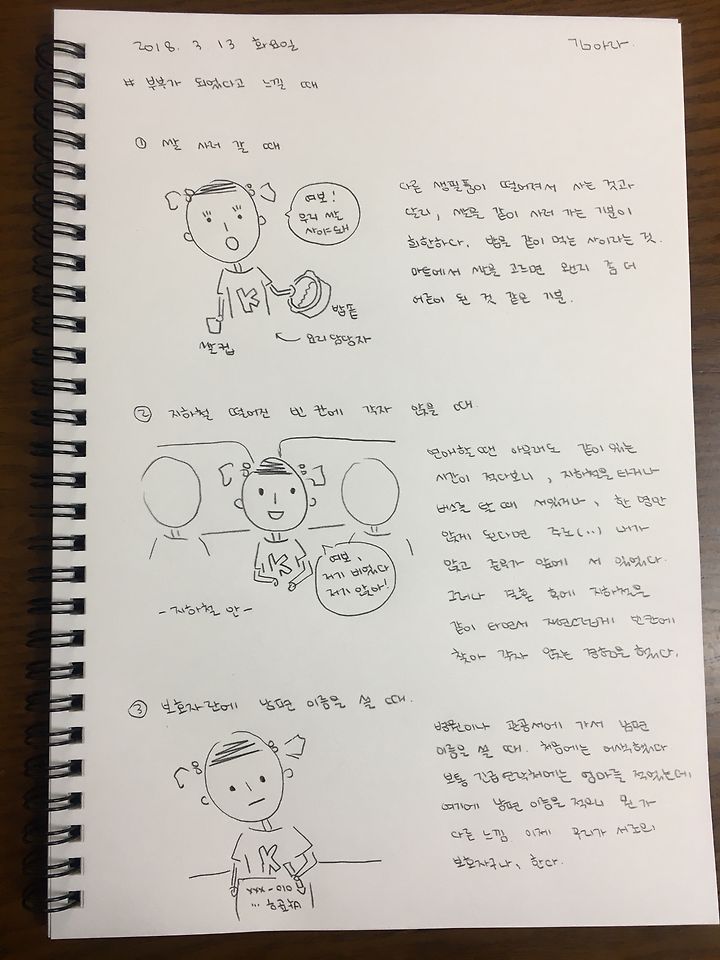 2018. 3 13 화요일
김아라.
# 부부가 되었다고 느낄 때
① 쌀 사러 갈 때
여보!
우리 쌀
사야돼
K
밥솥
쌀컵
요리담당자
다른 생필품이 떨어져서 사는 것과
달리, 쌀을 같이 사러 가는 기분이
희한하다. 밥을 같이 먹는 사이라는 것.
마트에서 쌀을 고르면 왠지 좀 더
어른이 된 것 같은 기분.
② 지하철 떨어진 빈 칸에 각자 앉을 때.
K
여보,
저기 비었다
저기 앉아!
- 지하철 안 -
연애할 땐 아무래도 같이 있는
시간이 적다보니, 지하철을 타거나
버스를 탈 때 서있거나, 한 명만
앉게 된다면 주로(...) 내가
앉고 준욱가 앞에 서 있었다.
그러나 결혼 후에 지하철을
같이 타면서 자연스럽게 빈칸에
찾아 각자 앉는 경험을 했다.
③ 보호자란에 남편 이름을 쓸 때.
K
010 - xxx
...
병원이나 관공서에 가서 남편
이름을 쓸 때. 처음에는 어색했다
보통 긴급연락처에는 엄마를 적었는데,
여기에 남편 이름을 적으니 뭔가
다른 느낌 이제 우리가 서로의
보호자구나, 한다.